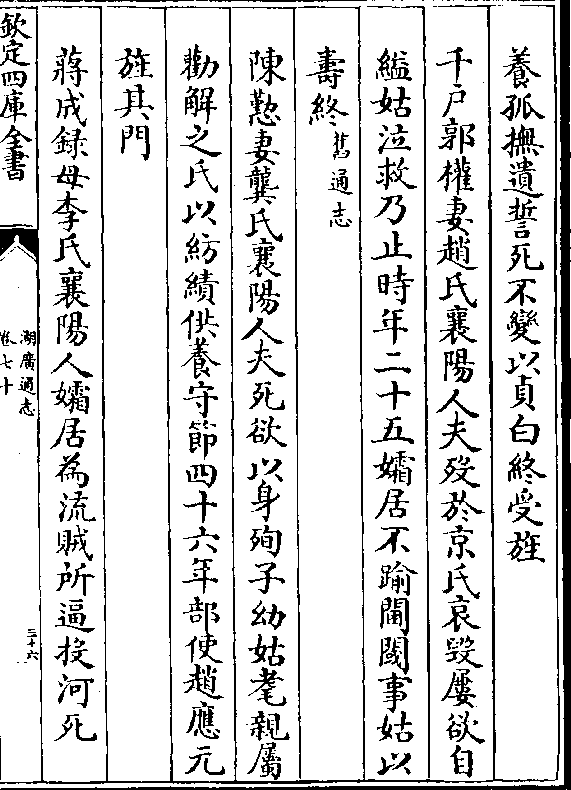 養孤撫遺誓死不變以貞白終受旌
千户郭權妻趙氏襄陽人夫殁於京氏哀毀屢欲自
縊姑泣救乃止時年二十五孀居不踰閫閾事姑以
壽終舊通志
陳懃妻龔氏襄陽人夫死欲以身殉子幼姑耄親屬
勸解之氏以紡績供養守節四十六年部使趙應元
旌其門
蔣成録母李氏襄陽人孀居為流賊所逼投河死
欽定四庫全書
湖廣通志
卷七十
三十六